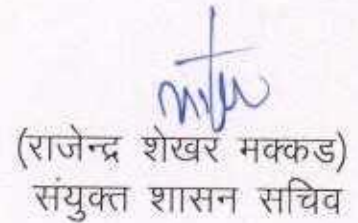 (राजेन्द्र शेखर मक्कड)
संयुक्त शासन सचिव